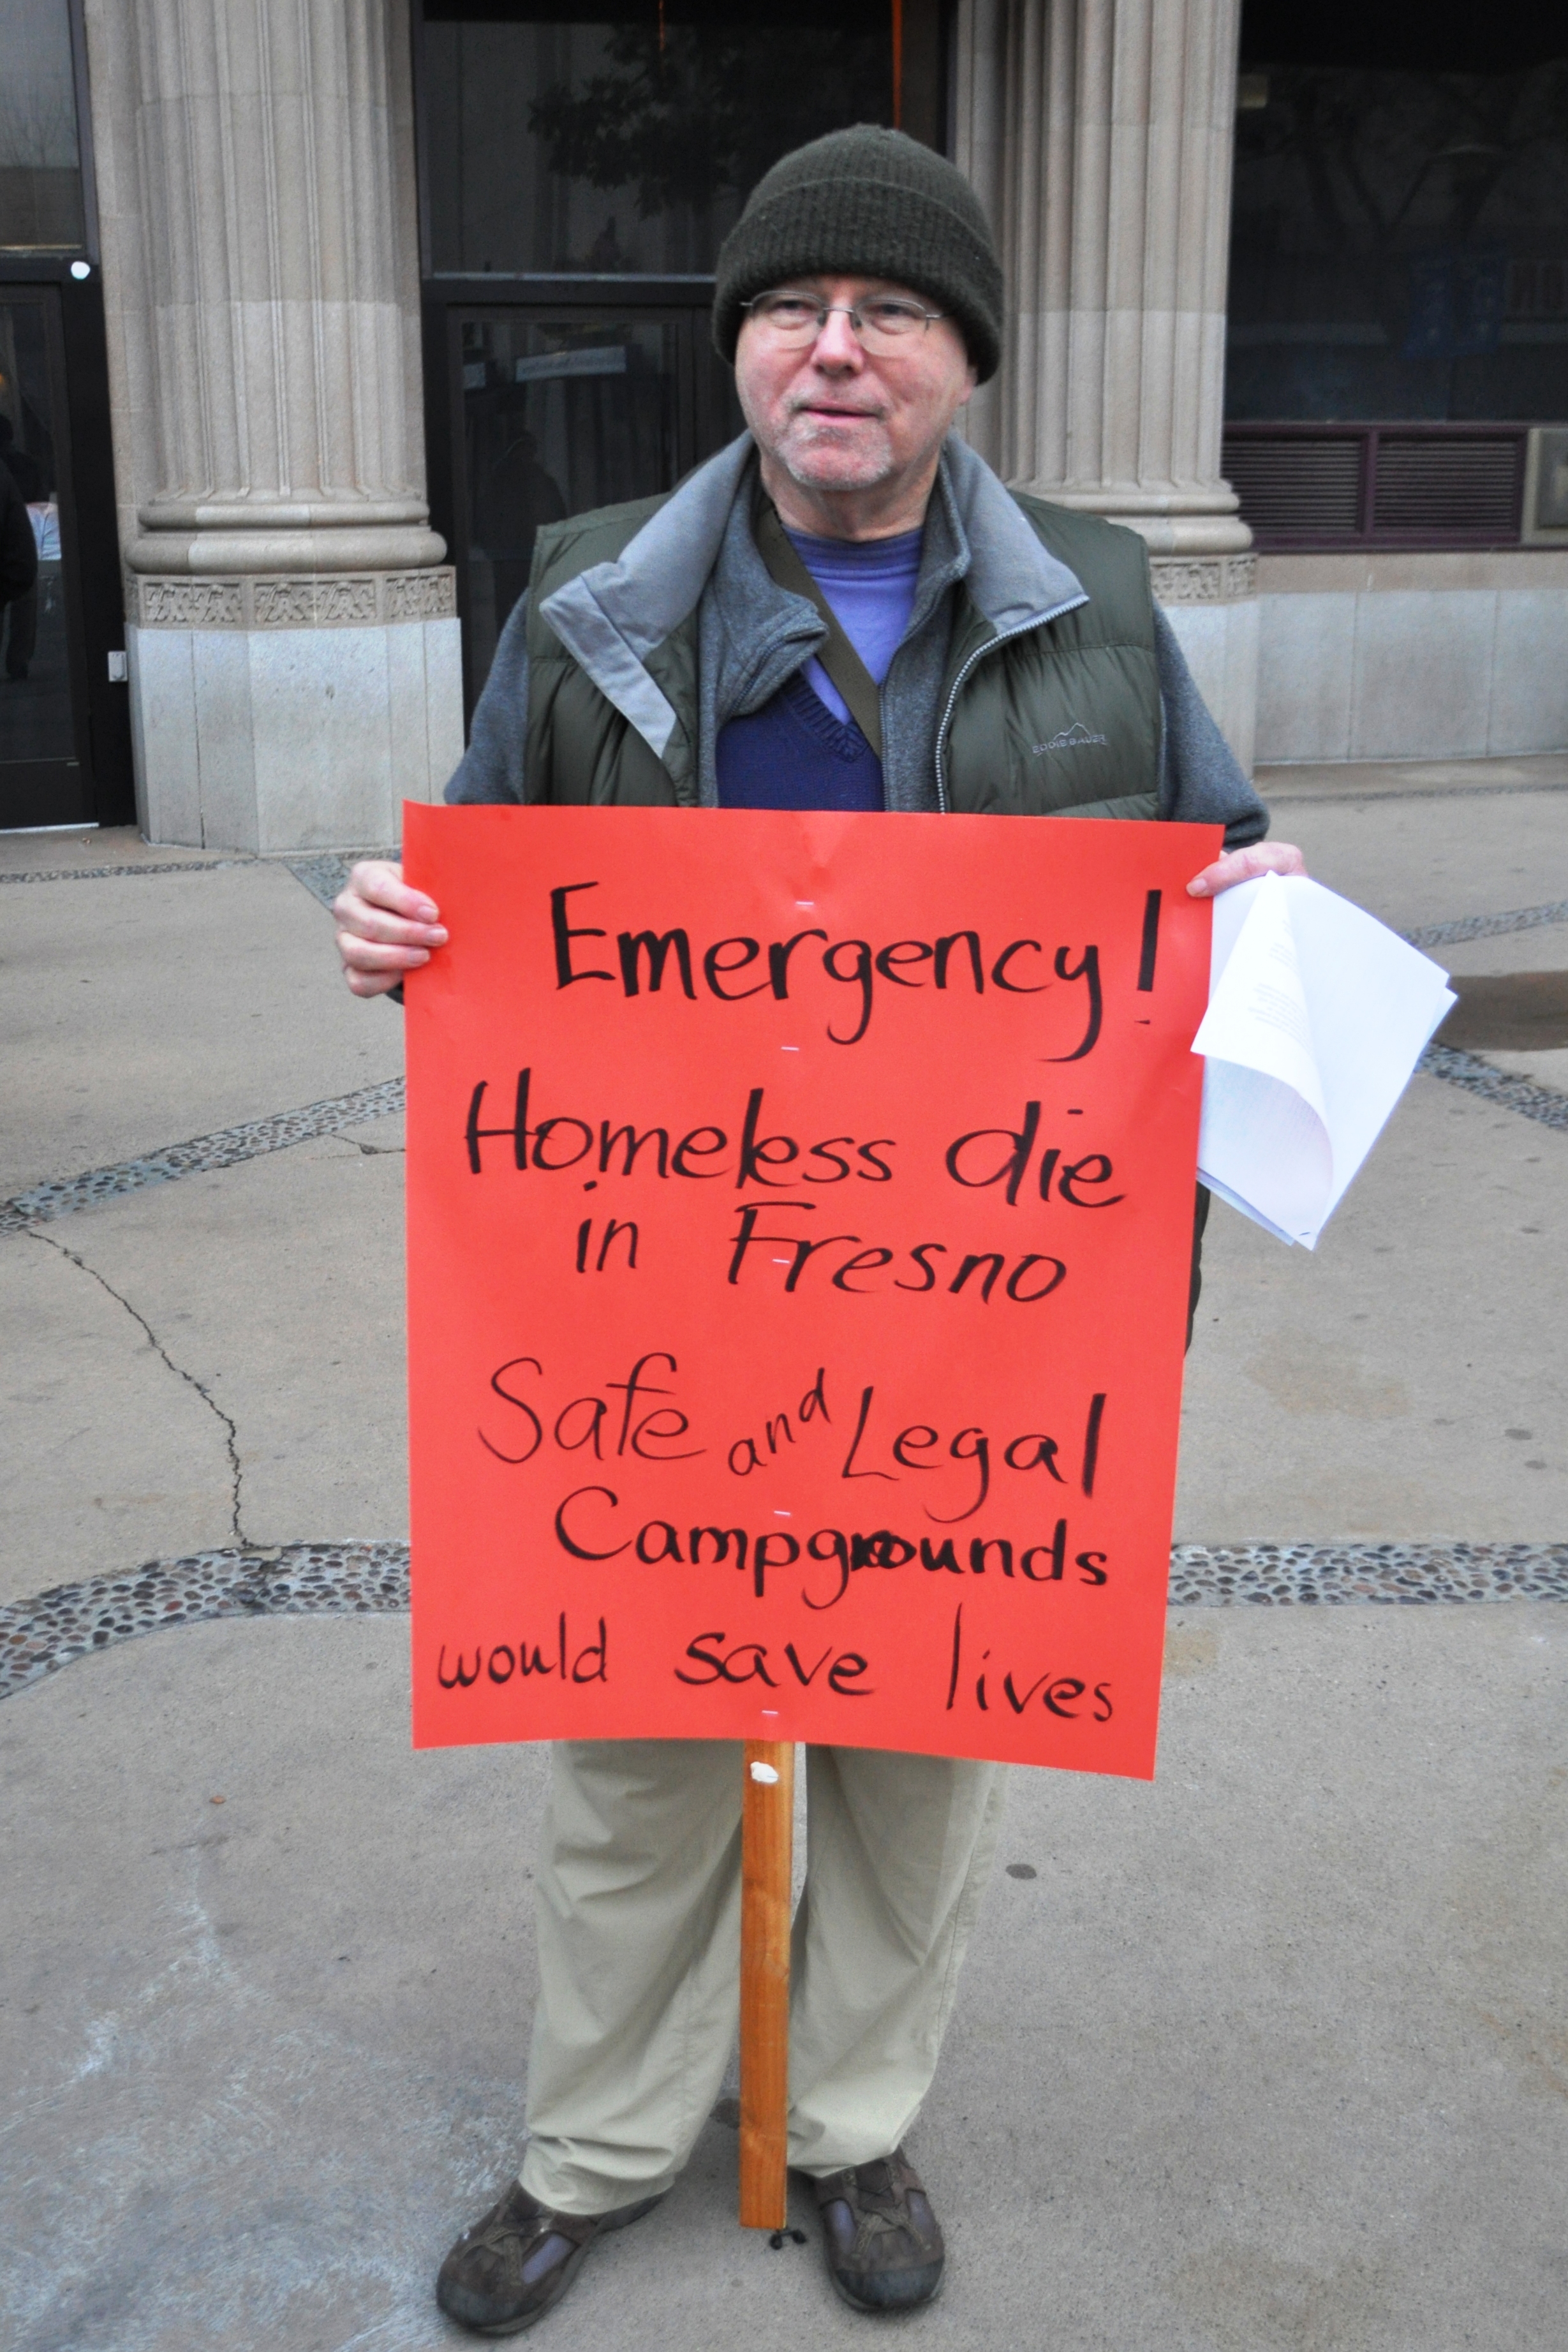 EDDIE BAUER
Emergency!
Homeless die
in Fresno
Safe and Legal
Campgrounds
would save lives